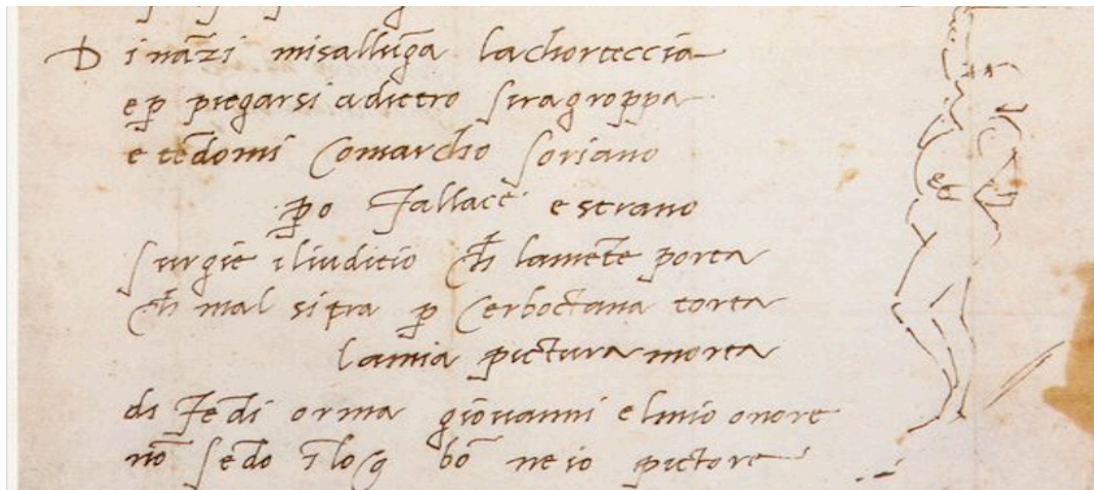 D ināzi misalluga lachorteccia
ep̱ piegarsi adietro siragroppa
e tēdomi Comarcho soriano
p̱o fallace e strano
surgie iliuditio cħ lamēte porta
cħ mal sitra p̱ cerboctana torta
lamia pictura morta
di fēdi orma giovanni elmio onore
nō sēdo ī loco bō ne io pictore